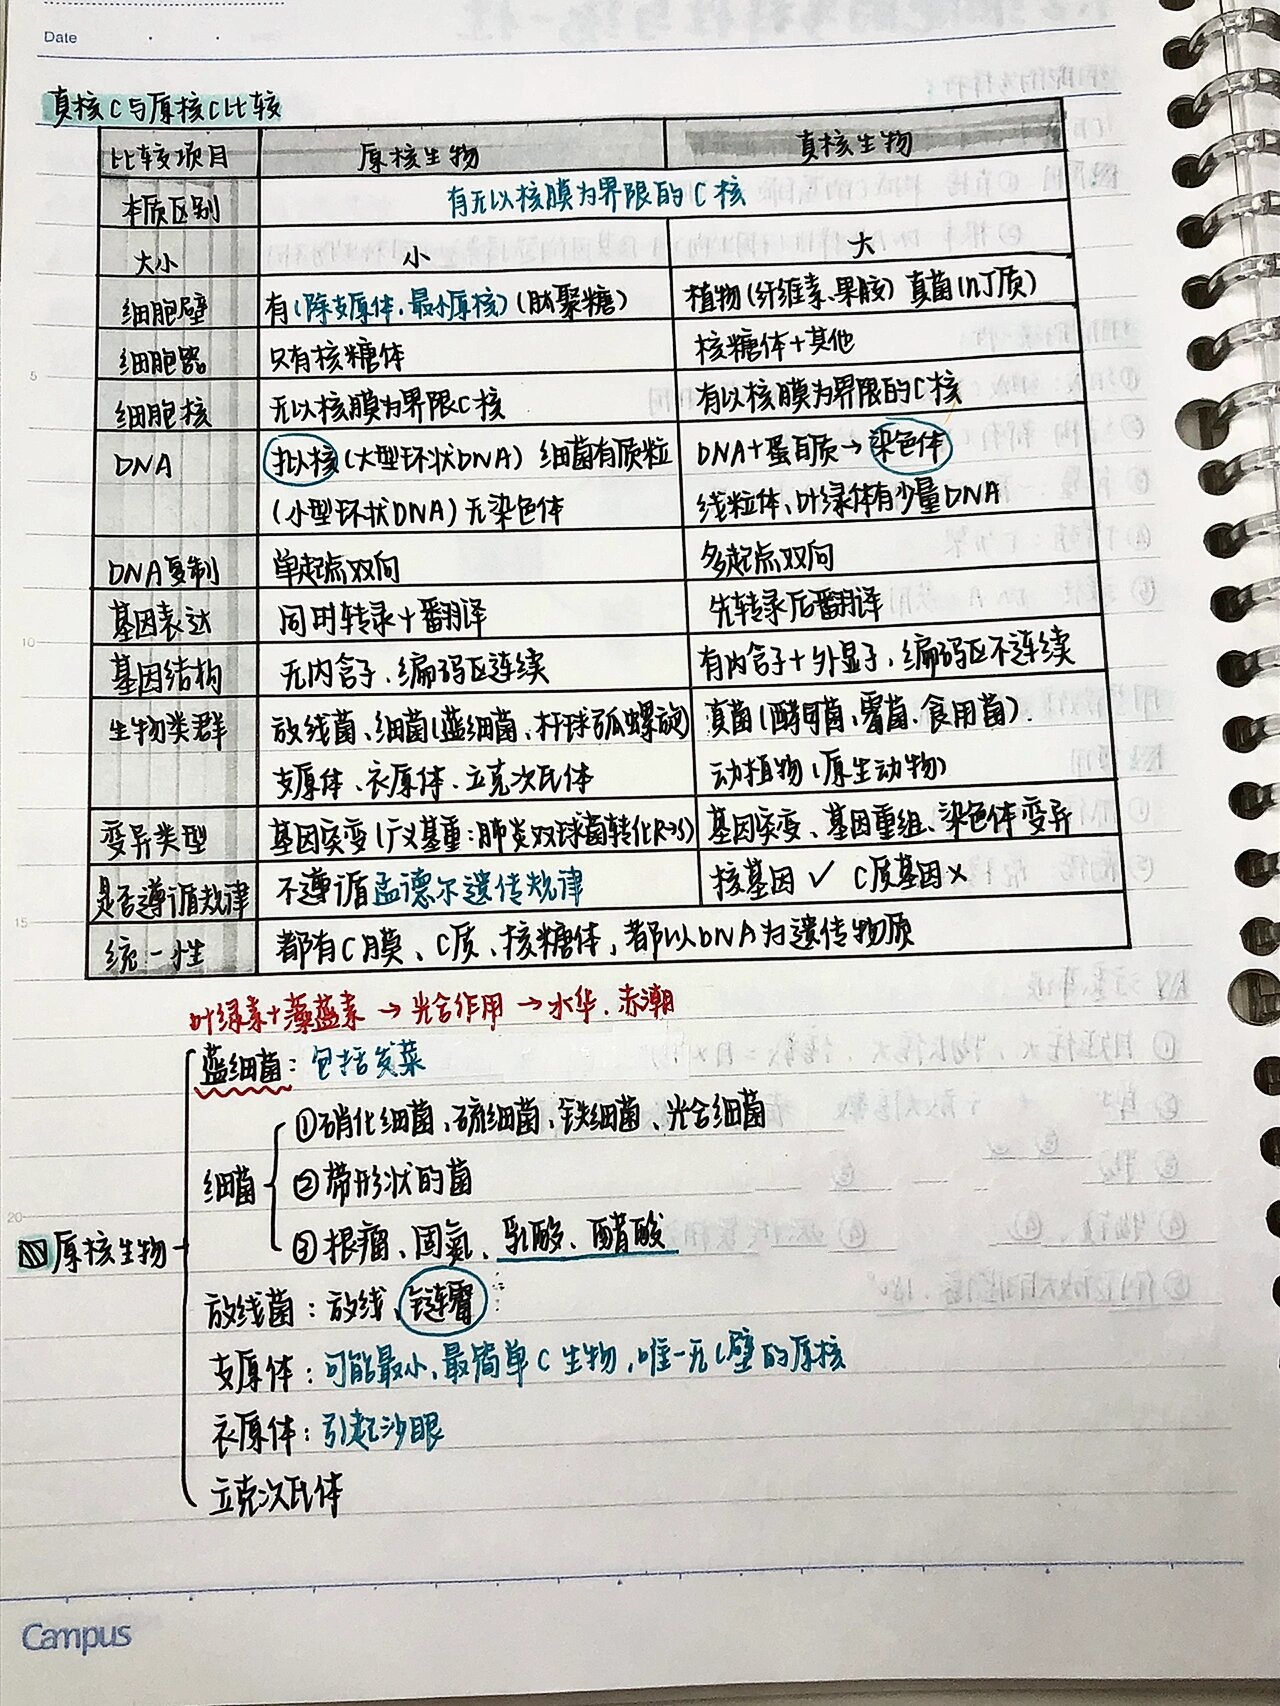 Date
真核C与原核C比较
比较项目 原核生物 真核生物
本质区别 有无以核膜为界限的C核
大小 小 大
细胞壁 有(除支原体,最小原核)(肽聚糖) 植物(纤维素、果胶) 真菌(几丁质)
细胞器 只有核糖体 核糖体+其他
细胞核 无以核膜为界限C核 有以核膜为界限的C核
DNA 拟核(大型环状DNA) 细菌有质粒 DNA+蛋白质→染色体
(小型环状DNA)无染色体 线粒体、叶绿体有少量DNA
DNA复制 单起点双向 多起点双向
基因表达 同时转录+翻译 先转录后翻译
基因结构 无内含子,编码区连续 有内含子+外显子,编码区不连续
生物类群 放线菌、细菌(蓝细菌、杆球弧螺旋) 真菌(酵母菌、霉菌、食用菌).
支原体、衣原体、立克次氏体 动植物(原生动物)
变异类型 基因突变(广义基重:肺炎双球菌转化R→S) 基因突变、基因重组、染色体变异
是否遵循规律 不遵循孟德尔遗传规律 核基因✓ C质基因×
统一性 都有C膜、C质、核糖体,都以DNA为遗传物质
叶绿素+藻蓝素→光合作用→水华.赤潮
蓝细菌:包括发菜
①硝化细菌、硫细菌、铁细菌、光合细菌
细菌 ②带形状的菌
③根瘤、固氮、乳酸、醋酸
原核生物
放线菌:放线、链霉
支原体:可能最小、最简单C生物,唯一无C壁的原核
衣原体:引起沙眼
立克次氏体
5
10
15
20
Campus